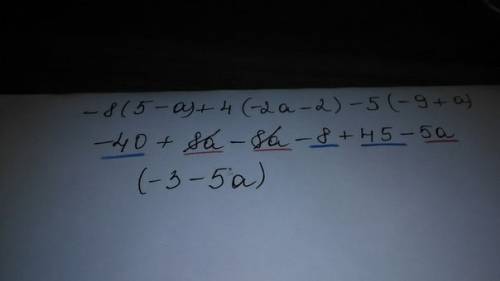 -8(5-a)+4(-2a-2)-5(-9+a)
-40+8a-8a-8+45-5a
(-3-5a)